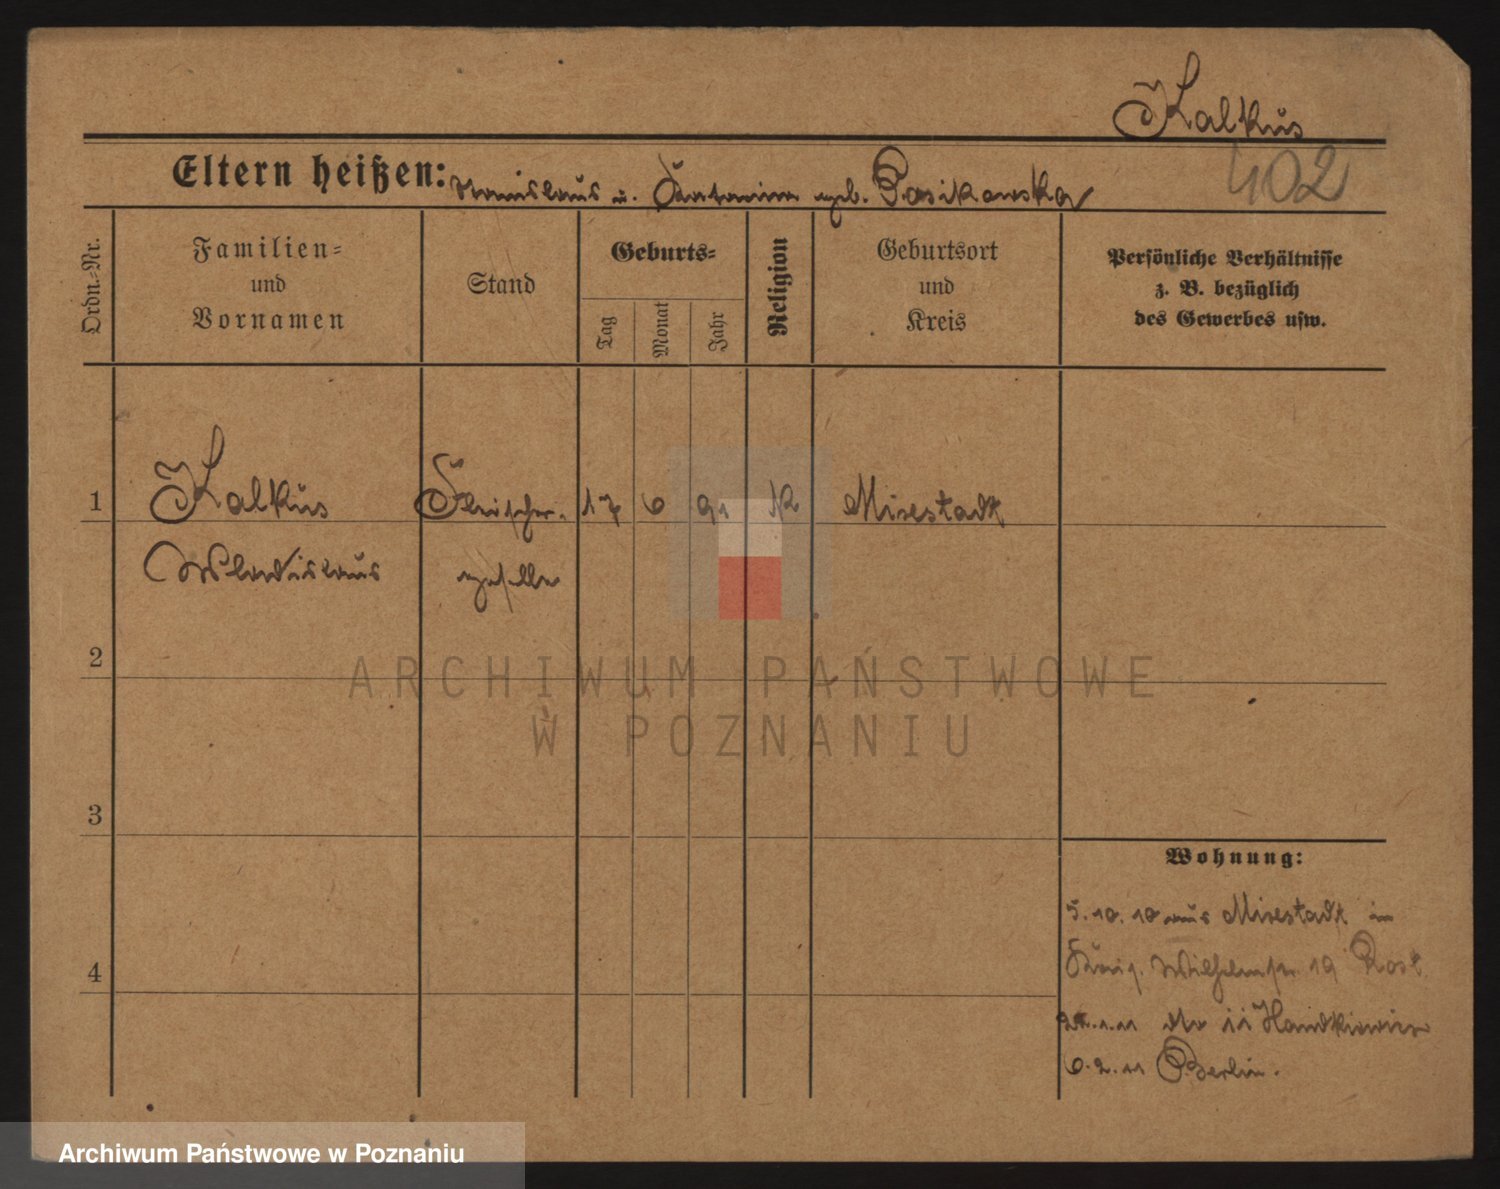 Kalkus
Eltern heißen: Stanislaus u. Katarina geb. Pasikowska
402
Ordn.-Nr.
Familien-
und
Vornamen
Stand
Geburts-
Tag
Monat
Jahr
Religion
Geburtsort
und
Kreis
Persönliche Verhältnisse
z. B. bezüglich
des Gewerbes usw.
1 Kalkus Fleischer- 17 6 91 K Mixstadt
Wladislaus geselle
2
3
4
Wohnung:
5.10.10 aus Mixstadt in
Wilhelmstr. 19
1.11 11
6.2.11 Berlin.
ARCHIWUM PAŃSTWOWE
W POZNANIU
Archiwum Państwowe w Poznaniu